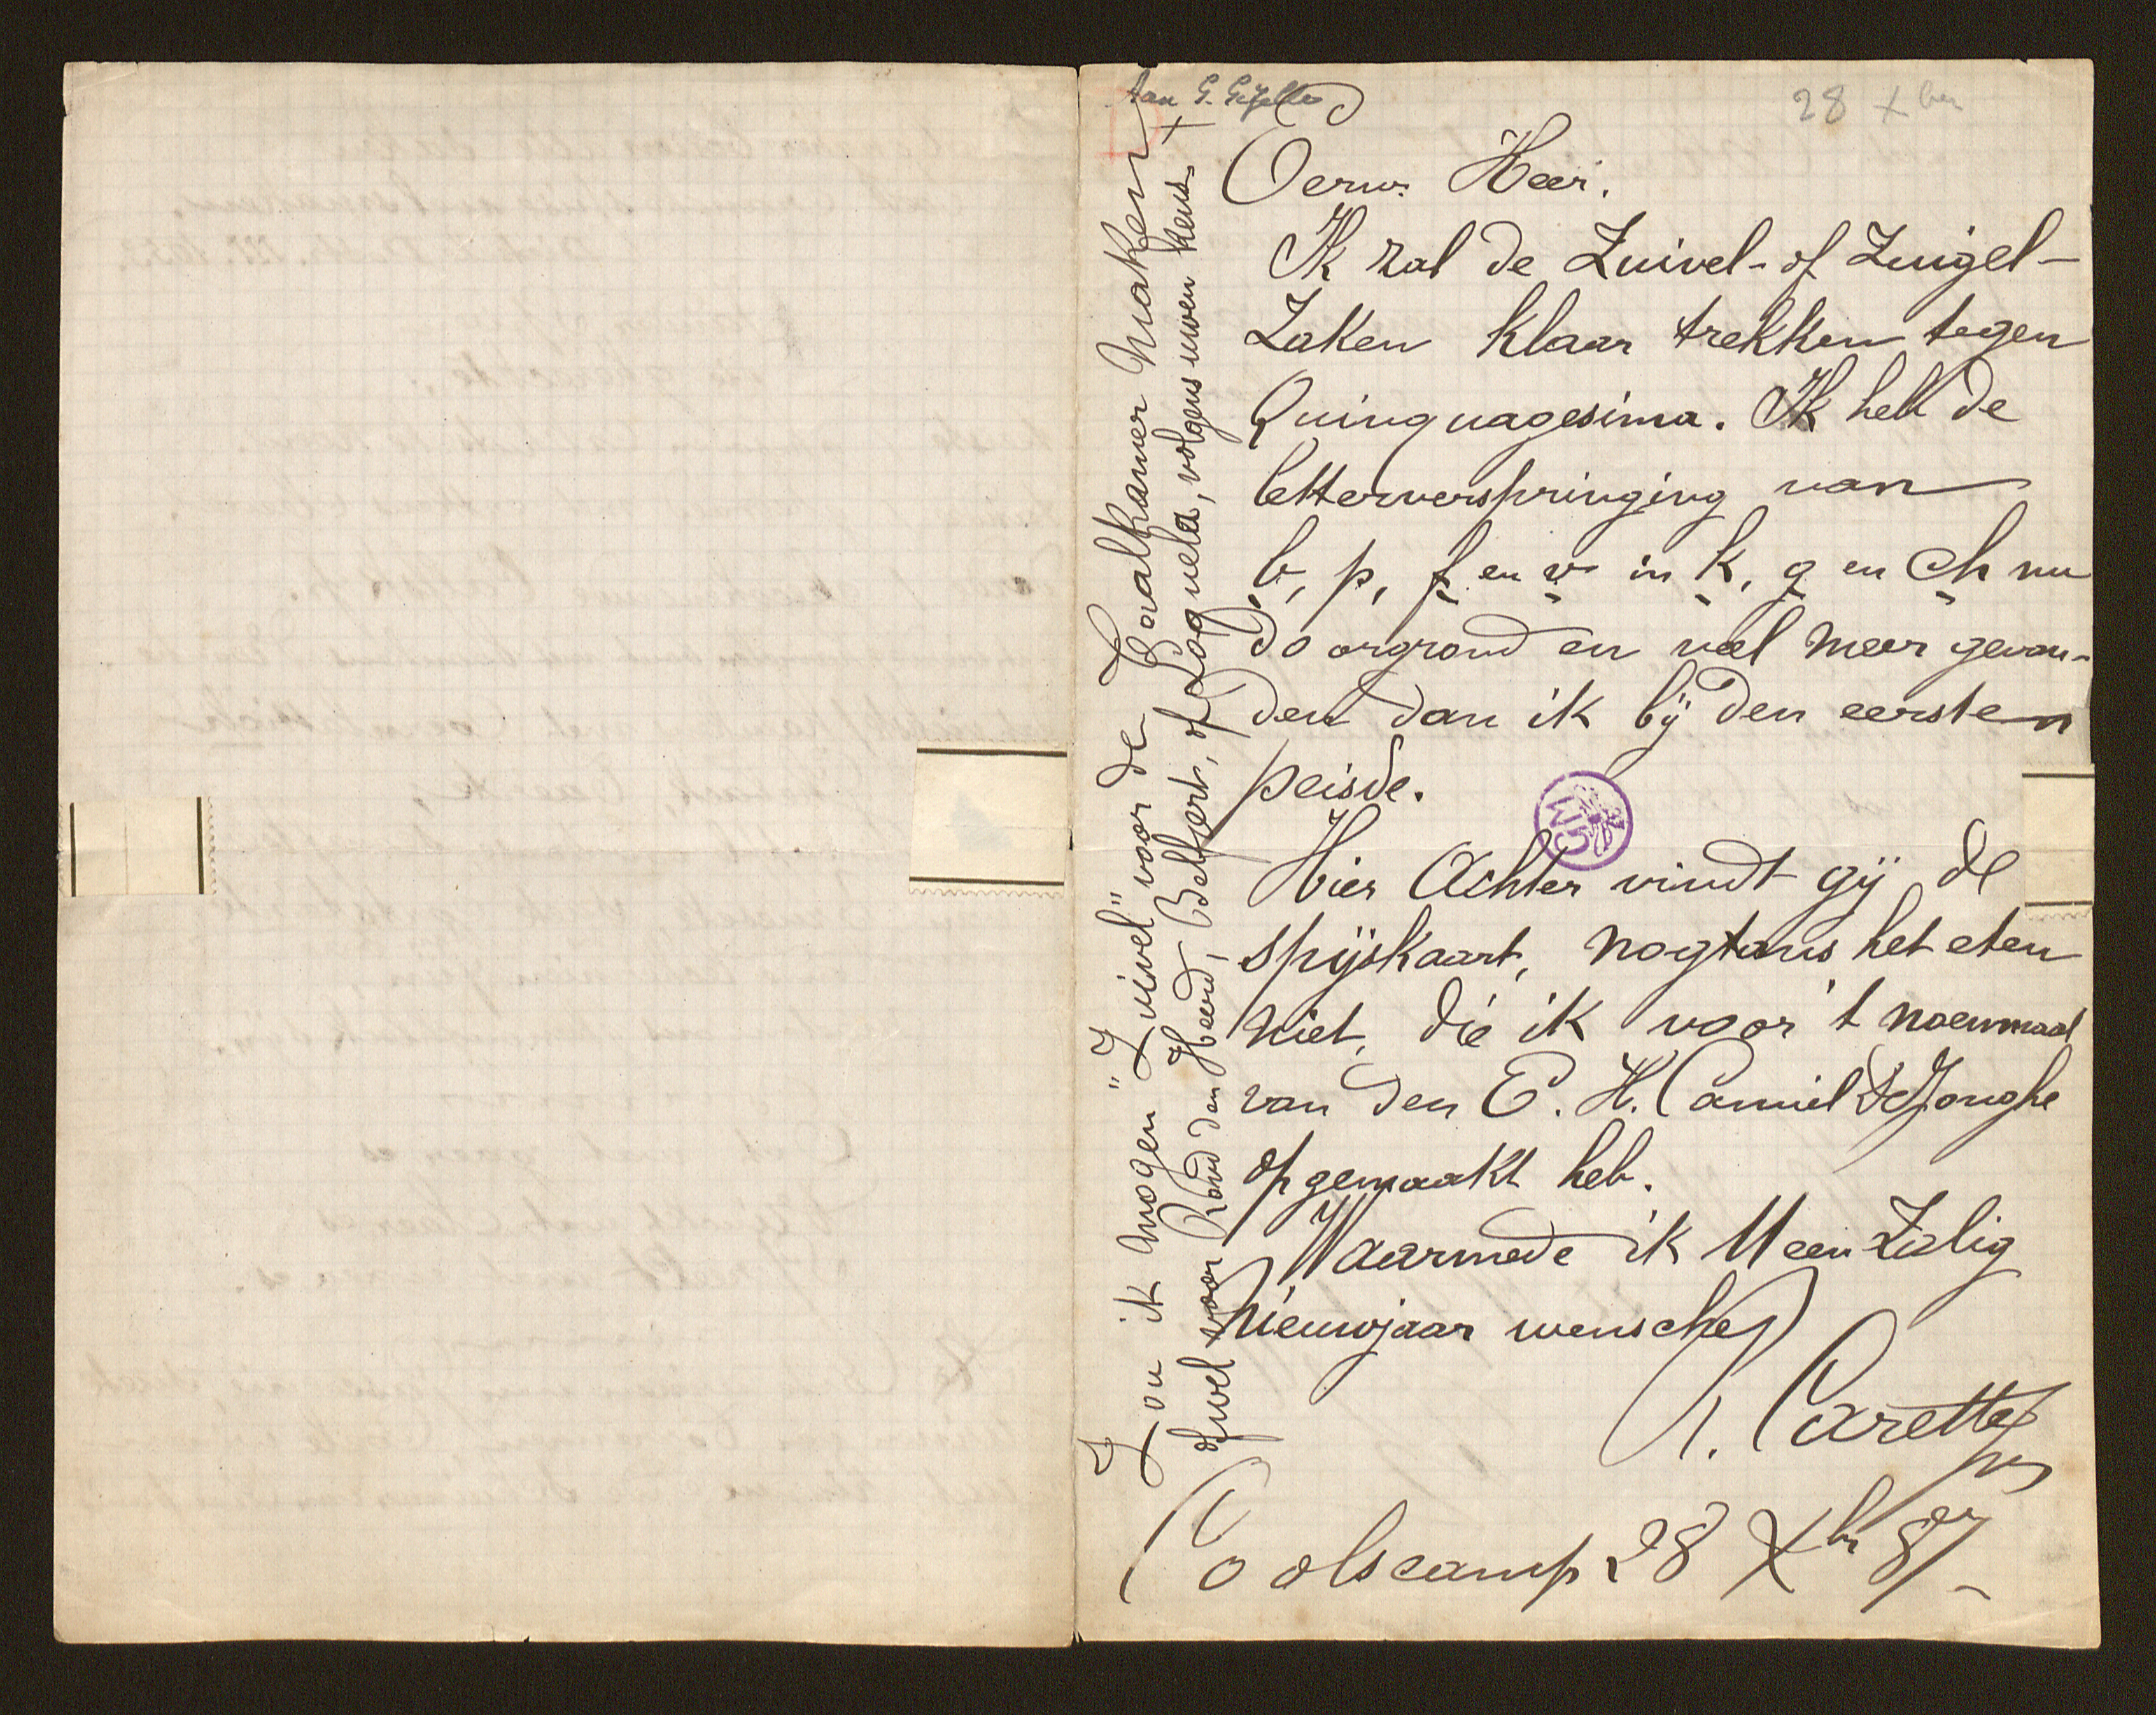 Aan G. Gezelle
28 Xber
Eerw. Heer.
Ik zal de Zuivel- of Zuigel-
Zaken klaar trekken tegen
Quinquagesima. Ik heb de
letterverspringing van
b, p, f en v in k, g en ch nu
doorgrond en veel meer gevon-
den dan ik bij den eersten
peisde.
Hier Achter vindt gij de
spijskaart, nogtans het eten
niet, die ik voor 't noenmaal
van den E. H. Camiel DeJonghe
opgemaakt heb.
Waarmede ik U een Zalig
Nieuwjaar wensche
Carette
Coolscamp 28 Xbr 87
Zou ik mogen "Zuivel" voor de Taalkamer maken
ofwel voor Rond den Heerd, Belfort, of Loquela, volgens uwen keus